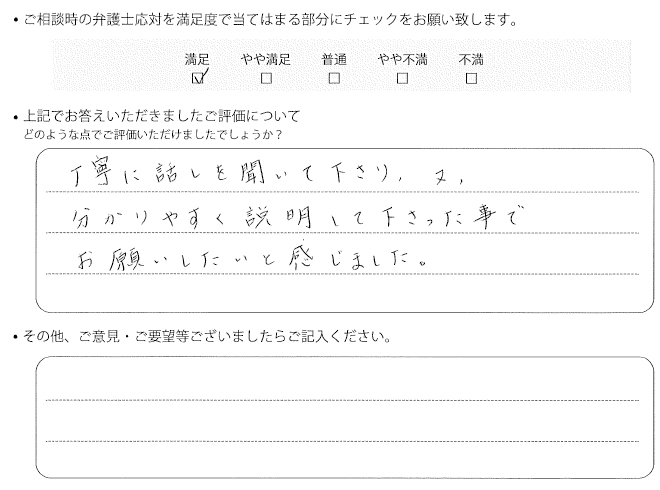 • ご相談時の弁護士応対を満足度で当てはまる部分にチェックをお願い致します。
満足 やや満足 普通 やや不満 不満
☑ □ □ □ □
• 上記でお答えいただきましたご評価について
どのような点でご評価いただけましたでしょうか？
丁寧に話しを聞いて下さり、又、
分かりやすく説明して下さった事で
お願いしたいと感じました。
• その他、ご意見・ご要望等ございましたらご記入ください。